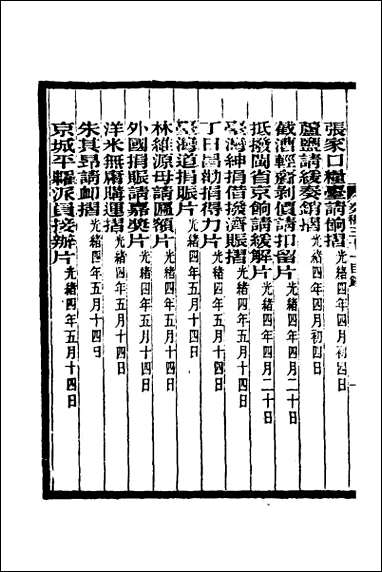 張家口糧臺請餉摺 光緒四年四月初四日
蘆鹽請緩奏銷摺 光緒四年四月初四日
截漕輕齎剝價請扣留片 光緒四年四月二十日
抵撥閩省京餉請緩解片 光緒四年四月二十日
臺海紳捐借撥濟賑摺 光緒四年五月十四日
丁日昌勸捐得力片 光緒四年五月十四日
臺海道捐賑片 光緒四年五月十四日
林維源母請匾額片 光緒四年五月十四日
外國捐賑請嘉獎片 光緒四年五月十四日
洋米無庸購運摺 光緒四年五月十四日
朱其昂請卹摺 光緒四年五月十四日
京城平糶派員接辦片 光緒四年五月十四日